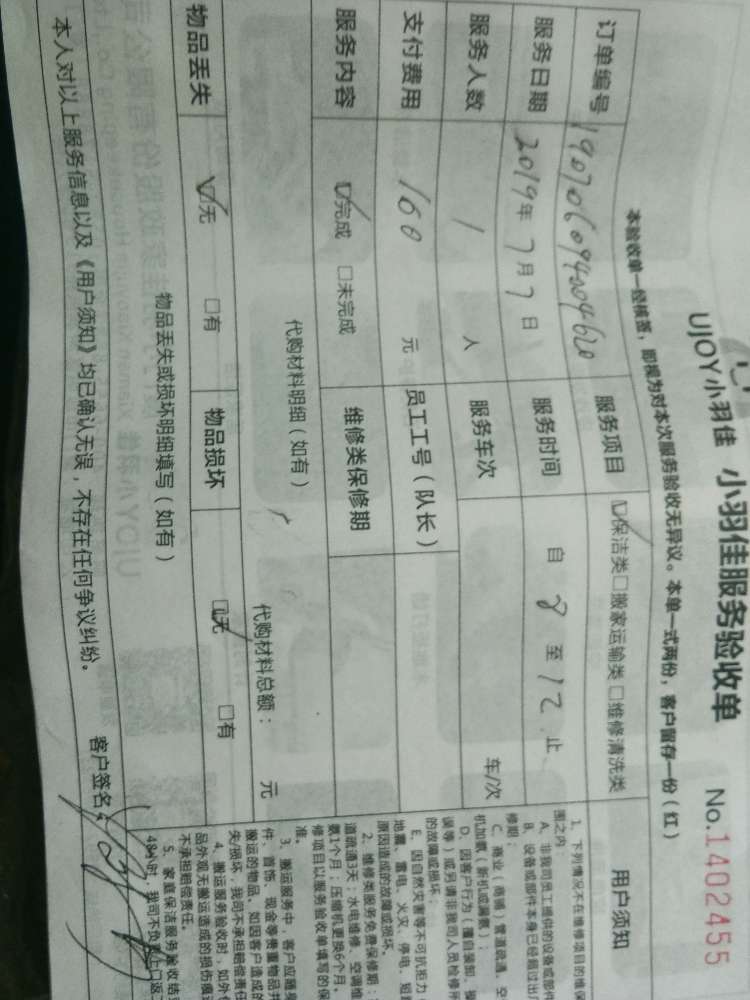 UJOY小羽佳 小羽佳服务验收单 No.1402455
本验收单一经核签，即视为对本次服务验收无异议。本单一式两份，客户留存一份（红）
订单编号 服务项目 ☑保洁类□搬家运输类□维修清洗类
服务日期 2019年7月7日 服务时间 自 8 至 12 止
服务人数 1 人 服务车次 车/次
支付费用 160 元 员工工号（队长）
服务内容 ☑完成 □未完成 维修类保修期
代购材料明细（如有） 代购材料总额： 元
物品丢失 ☑无 □有 物品损坏 ☑无 □有
物品丢失或损坏明细填写（如有）
本人对以上服务信息以及《用户须知》均已确认无误，不存在任何争议纠纷。
客户签名：
用户须知
1、下列情况不在维修项目的维保
围之内
A、非我司员工提供的设备或部件
B、设备或部件本身已经超过出厂
修期；
C、商业（商铺）管道疏通，空
机加氟（新机或漏氟）；
D、因客户行为（擅自装卸、操
误等）或另请非我司人员检修所
的故障或损坏；
E、因自然灾害等不可抗拒力
地震、雷电、火灾、停电、短
原因造成的故障或损坏。
2、维修类服务免费保修期：
道疏通3天；水电维修、空调维
氟1个月；压缩机更换6个月。
修项目以服务验收单填写的保
准。
3、搬运服务中，客户应随身
件、首饰、现金等贵重物品并
搬运的物品。如因客户造成的
失/损坏，我司不承担赔偿责任
4、搬运服务验收时，如外包
品外观无搬运造成的损伤痕
不承担赔偿责任。
5、家庭保洁服务验收结
48小时，我司不负责上门返